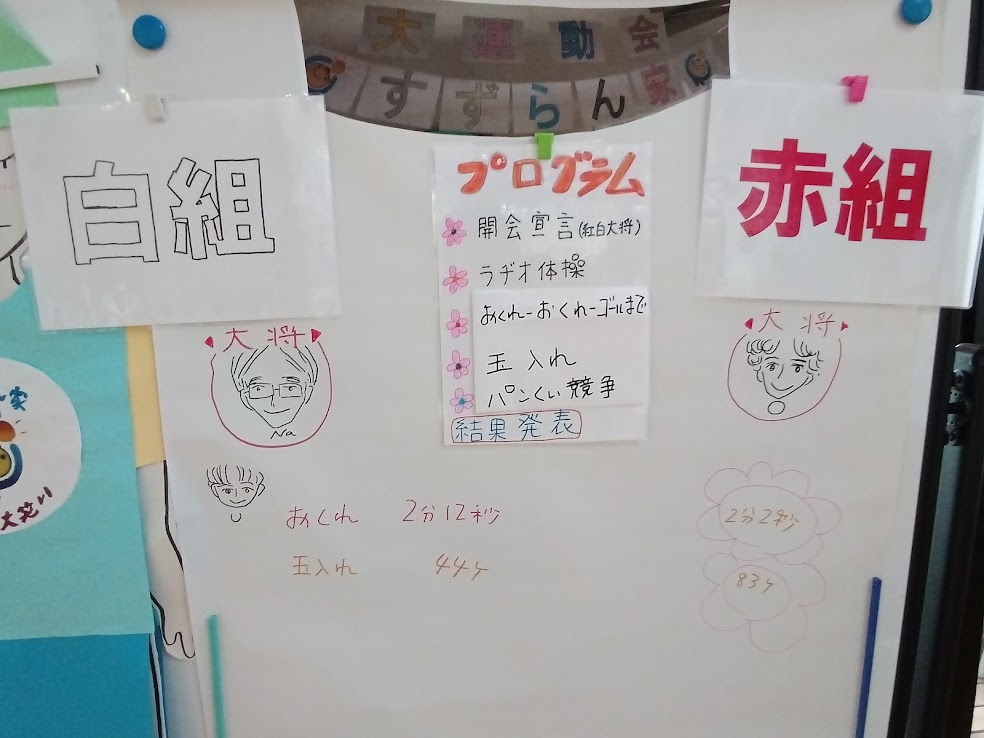 大運動会
すずらん家
白組
赤組
プログラム
開会宣言(紅白大将)
ラヂオ体操
おくれーおくれーゴールまで
玉入れ
パンくい競争
結果発表
大将
大将
Na
おくれ 2分12秒
2分2秒
玉入れ 44ヶ
83ヶ
家
大笑い